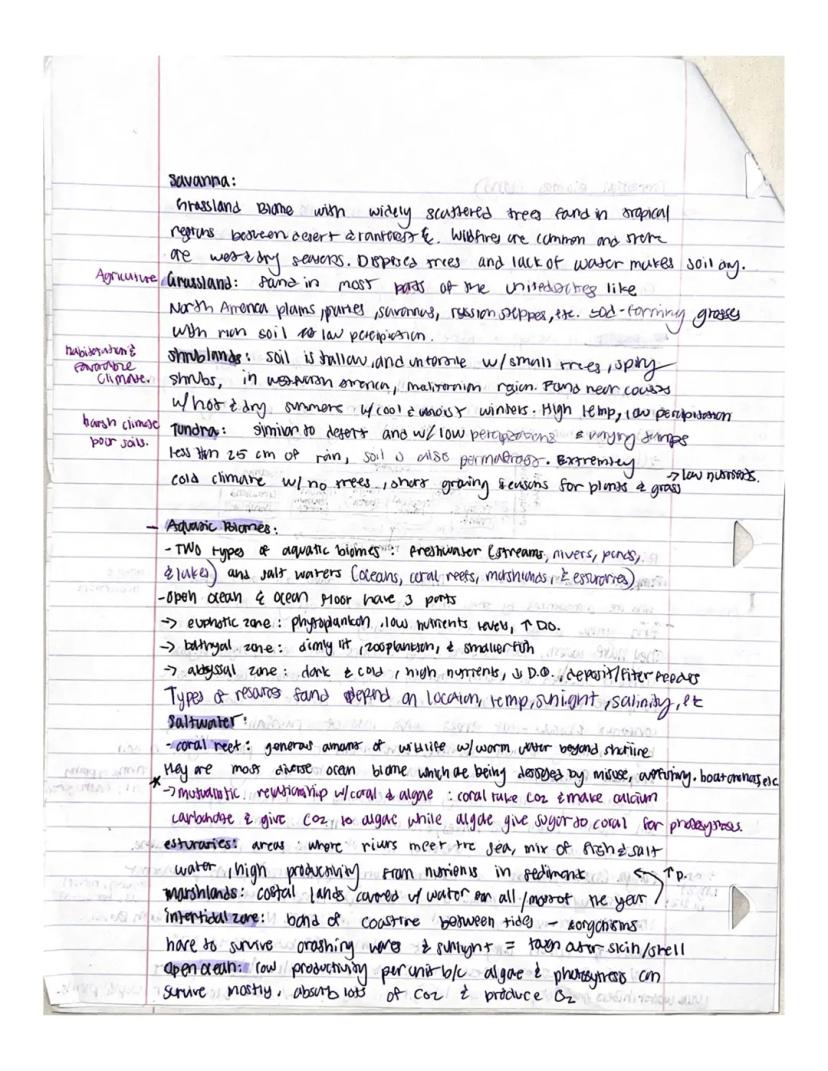 Savanna:
Grassland Biome with widely scattered trees fand in tropical
regions between desert & ranforest &. Wildfires are common and there
are wet & dry seasons. Dispersed trees and lack of water makes soil dry.
Agriculture Grassland: fand in most parts of the united states like
North America plains, praries, savannas, russian steppes, etc. sod-forming grasses
with rich soil & low percipiation.
habitation & favorable climate.
shrublands: soil is shallow, and infertile w/ small trees, spiny
shrubs, in west north america, region. Fand near coasts
w/ hot & dry summers w/ cool & moist winters. High temp, low percipitation
harsh climate poor soils.
Tundra: similar to desert and w/ low percipitations & varying temps
less than 25 cm of rain, soil is also permafrost. Extremley
cold climate w/ no trees, short growing seasons for plants & grass → low nutrients.
- Aquatic Biomes:
- TWO types of aquatic biomes: freshwater (streams, rivers, ponds,
& lakes) and salt waters (oceans, coral reefs, marshlands, & esturaries).
- open ocean & ocean floor have 3 parts
→ euphotic zone: phytoplankton, low nutrients levels, ↑ DO.
→ bathyal zone: dimly lit, zooplankton, & smaller fish
→ abyssal zone: dark & cold, high nutrients, ↓ D.O., deposit/filter feeders
Types of resources fand depend on location, temp, sunlight, salinity, etc
Saltwater:
- coral reef: generous amount of wildlife w/ warm water beyond shorline
* They are most diverse ocean biome which are being destroyed by misuse, overfishing, boat anchors etc
→ mutualistic relationship w/ coral & algae: coral take CO2 & make calcium
carbonate & give CO2 to algae while algae give sugar to coral for photosyntesis.
esturaries: areas where rivers meet the sea, mix of fresh & salt
water, high productivity from nutrients in sediments ↑ P.
marshlands: costal lands covered w/ water on all/most of the year
intertidal zone: band of coastline between tides - & organisms
have to survive crashing waves & sunlight = tough outer skin/shell
open ocean: low productivity per unit b/c algae & photosynthesis can
survive mostly. absorb lots of CO2 & produce O2